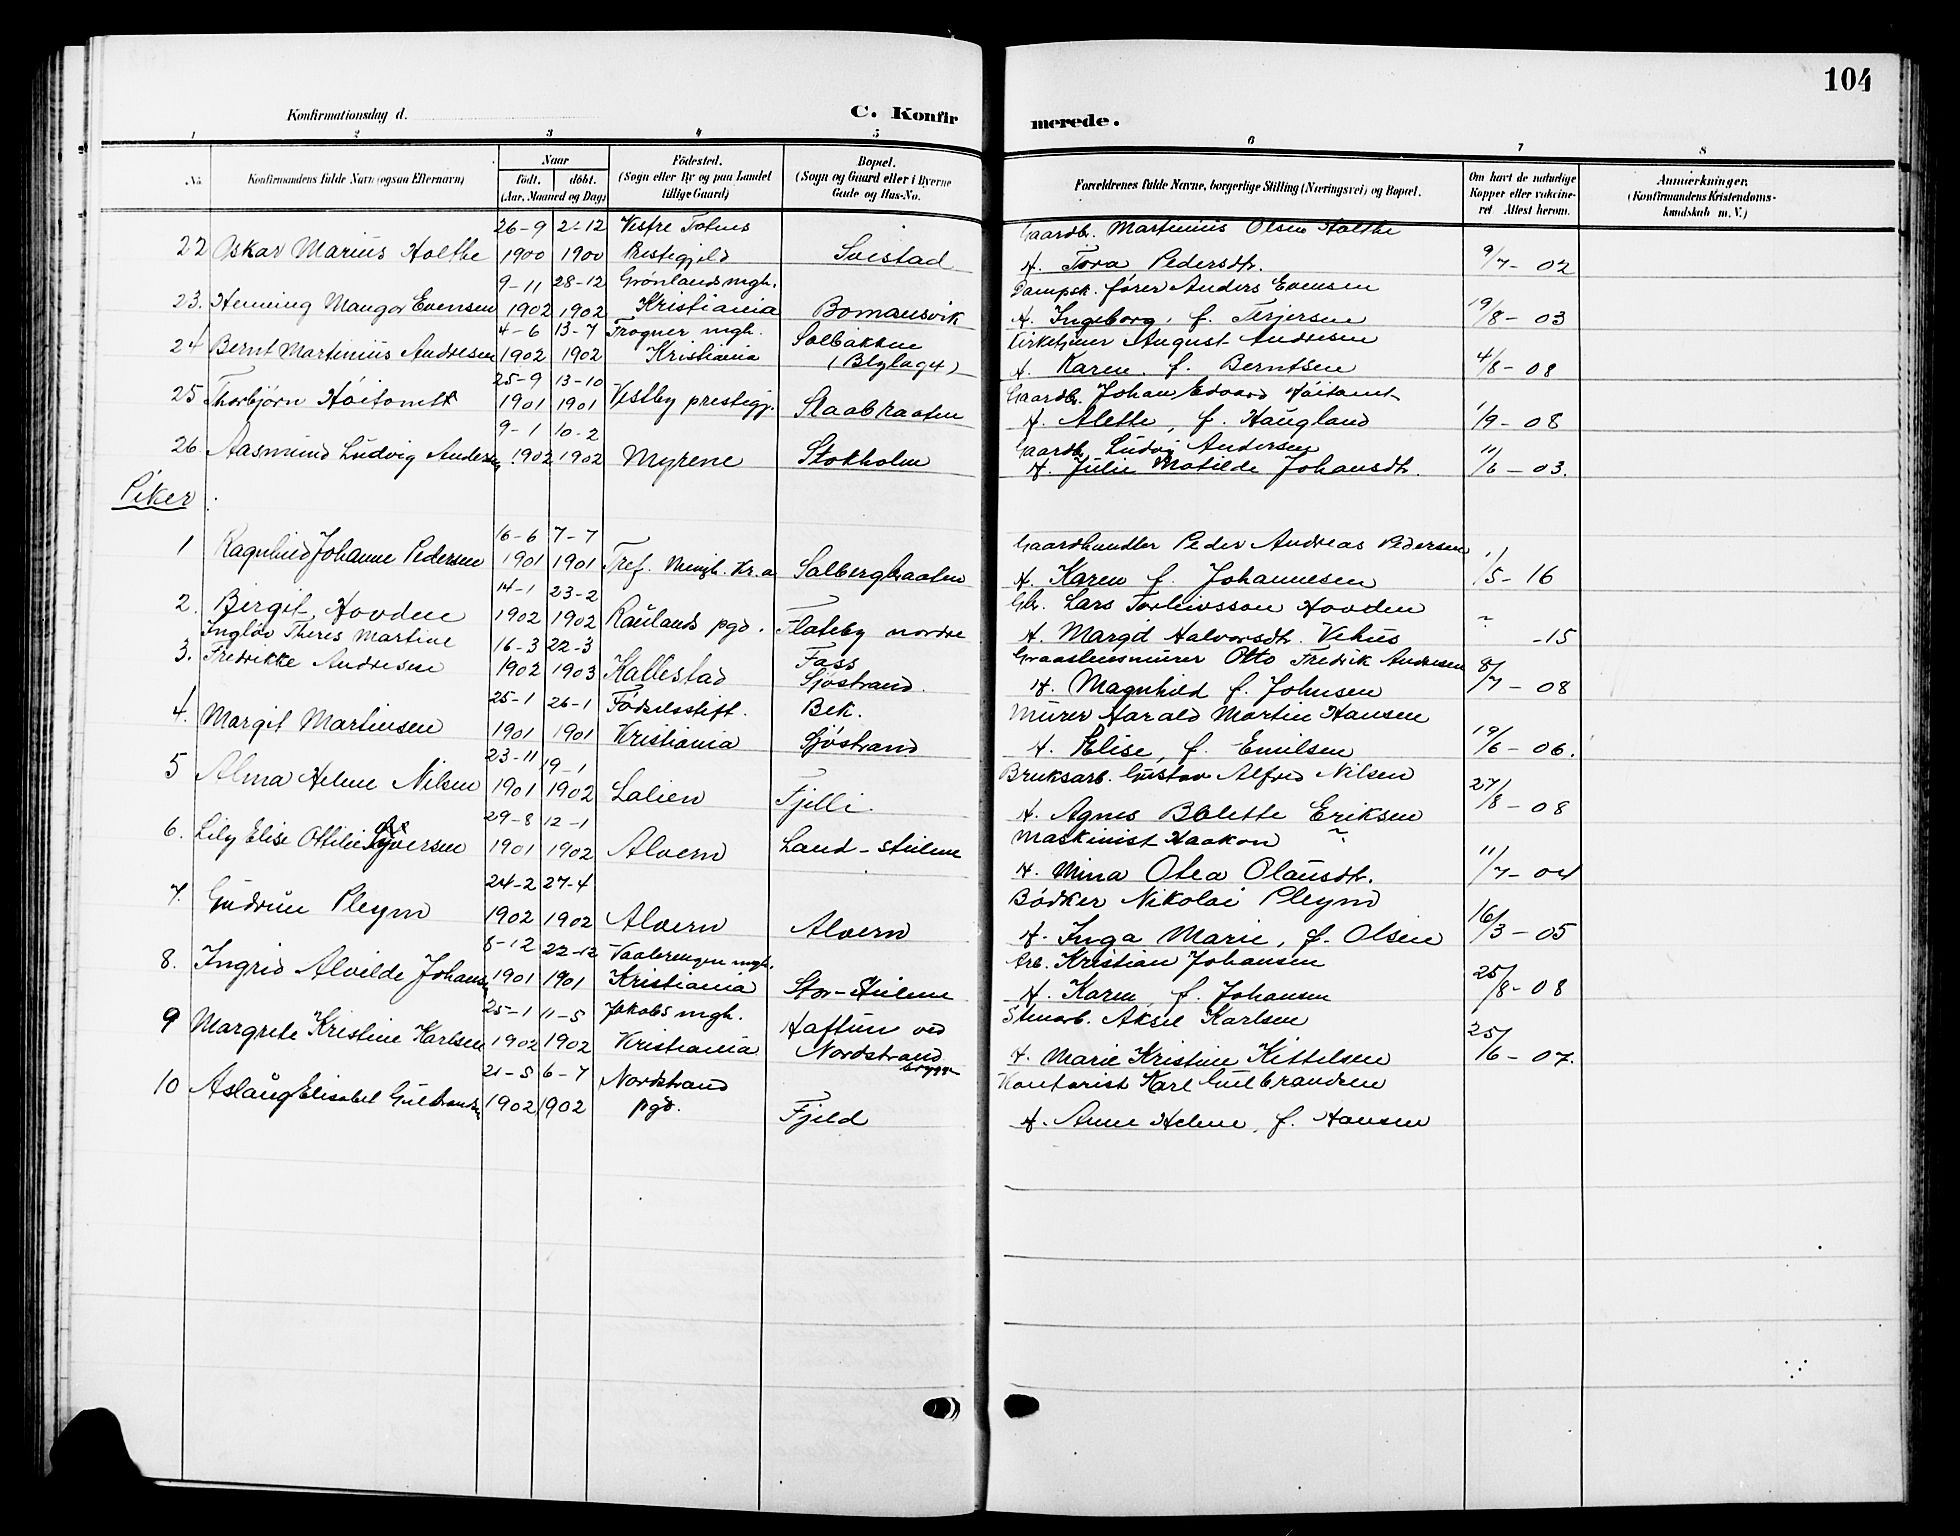 104
Konfirmationsdag d.
C. Konfirmerede.
1 2 3 4 5 6 7 8
No.
Konfirmandens fulde Navn (ogsaa Efternavn)
Naar
født. døbt.
(Aar, Maaned og Dag)
Fødested.
(Sogn eller By og paa Landet
tillige Gaard)
Bopæl.
(Sogn og Gaard eller i Byerne
Gade og Hus-No.
Forældrenes fulde Navne, borgerlige Stilling (Næringsvei) og Bopæl.
Om havt de naturlige
Kopper eller vakcineret
Attest herom.
Anmerkninger.
(Konfirmandens Kristendomskundskab
m. V.)
26-9 2-12 Vestre Totens Gaardbr. Martinius Olsen Holthe
22 Oskar Marius Holthe 1900 1900 Prestegjeld Svistad H. Tora Pedersdtr. 9/7-02
9-11 28-12 Grønlands mgh. Dampsk. fører Anders Evensen
23. Henning Mangor Evensen 1902 1902 Kristiania Bomansvik H. Ingeborg, f. Terjersen 19/8-03
4-6 13-7 Frogner mgh. Solbakken Kirketjener August Andresen
24 Bernt Martinius Andresen 1902 1902 Kristiania (Blylaget) H. Karen f. Berntsen 4/8-08
25-9 13-10 Gaardbr. Johan Edvard Høitomt
25 Thorbjørn Høitomt 1901 1901 Vestby prestegj. Slaabraaten H. Alette, f. Haugland 1/9-08
9-1 10-2 Gaardb. Ludvig Andersen
26 Aasmund Ludvig Andersen 1902 1902 Myrene Stokholm H. Julie Matilde Johansdtr. 11/6-03.
Piker:
16-6 7-7 Gaardhandler Peder Andreas Pedersen
1 Ragnhild Johanne Pedersen 1901 1901 Tref. Menigh. Kr.a Solbergbraaten H. Karen f. Johannesen 1/5-16
14-1 23-2 Gbr. Lars Torleivsson Hovden
2. Birgit Hovden 1902 1902 Raulands pgd. Flateby nordre H. Margit Halvorsdtr. Vehus -15
Ingløv Theres Martine 16-3 22-3 Fass Graastensmurer Otto Fredrik Andresen
3. Fredrikke Andresen 1902 1903 Kallestad Sjøstrand. H. Magnhild f. Johnsen 8/7-08
25-1 26-1 Fødselsstift. Bek. Murer Harald Martin Hansen
4. Margit Martinsen 1901 1901 Kristiania Sjøstrand H. Elise, f. Emilsen 19/6-06.
23-11 19-1 Bruksarb. Gustav Alfred Nilsen
5 Alma Helene Nilsen 1901 1902 Lalien Fjelli. H. Agnes Bolette Eriksen 27/8-08
29-8 12-1 Maskinist Haakon ~
6. Lily Elise Ottilie Syversen 1901 1902 Alvern Land-stulene H. Mina Otea Olausdtr. 11/7-04
24-2 27-4 Bødker Nikolai Pleym
7. Gudrun Pleym 1902 1902 Alvern Alvern H. Inga Marie, f. Olsen 16/3-05
8-12 22-12 Vaalerengen mgh. Arb. Kristian Johansen
8. Ingrid Alvilde Johansen 1901 1901 Kristiania Stor-Stulene H. Karen, f. Johansen 25/8-08
25-1 11-5 Jakobs mgh. Haftun ved Stenarb. Aksel Karlsen
9 Margrete Kristine Karlsen 1902 1902 Kristiania Nordstrand brygge H. Marie Kristine Kittelsen 25/6-07.
21-5 6-7 Nordstrand Kontorist Karl Gulbrandsen
10 Aslaug Elisabet Gulbrandsen 1902 1902 pgd. Fjeld H. Anne Helene, f. Hansen